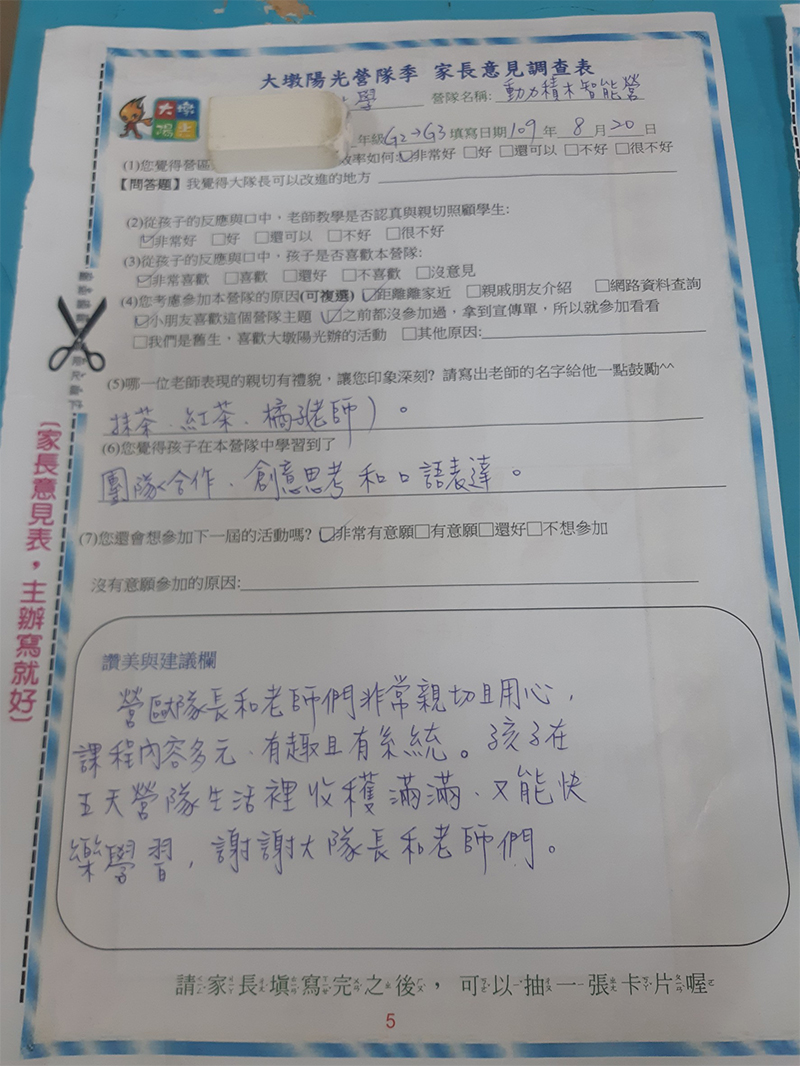 大墩陽光營隊季 家長意見調查表
學 營隊名稱: 動力積木智能營
大墩
陽光
年級G2→G3填寫日期109年 8 月 20 日
(1)您覺得營區 效率如何:☑非常好 □好 □還可以 □不好 □很不好
【問答題】我覺得大隊長可以改進的地方
(2)從孩子的反應與口中,老師教學是否認真與親切照顧學生:
☑非常好 □好 □還可以 □不好 □很不好
(3)從孩子的反應與口中,孩子是否喜歡本營隊:
☑非常喜歡 □喜歡 □還好 □不喜歡 □沒意見
(4)您考慮參加本營隊的原因(可複選) ☑距離離家近 □親戚朋友介紹 □網路資料查詢
☑小朋友喜歡這個營隊主題 ☑之前都沒參加過,拿到宣傳單,所以就參加看看
□我們是舊生,喜歡大墩陽光辦的活動 □其他原因:
(5)哪一位老師表現的親切有禮貌,讓您印象深刻? 請寫出老師的名字給他一點鼓勵^^
抹茶、紅茶、橘子(老師)。
(6)您覺得孩子在本營隊中學習到了
團隊合作、創意思考和口語表達。
(7)您還會想參加下一屆的活動嗎? ☑非常有意願□有意願□還好□不想參加
沒有意願參加的原因:
讚美與建議欄
營區隊長和老師們非常親切且用心,
課程內容多元、有趣且有系統。孩子在
五天營隊生活裡收穫滿滿、又能快
樂學習,謝謝大隊長和老師們。
請家長填寫完之後,可以抽一張卡片喔
5
〔家長意見表,主辦寫就好〕